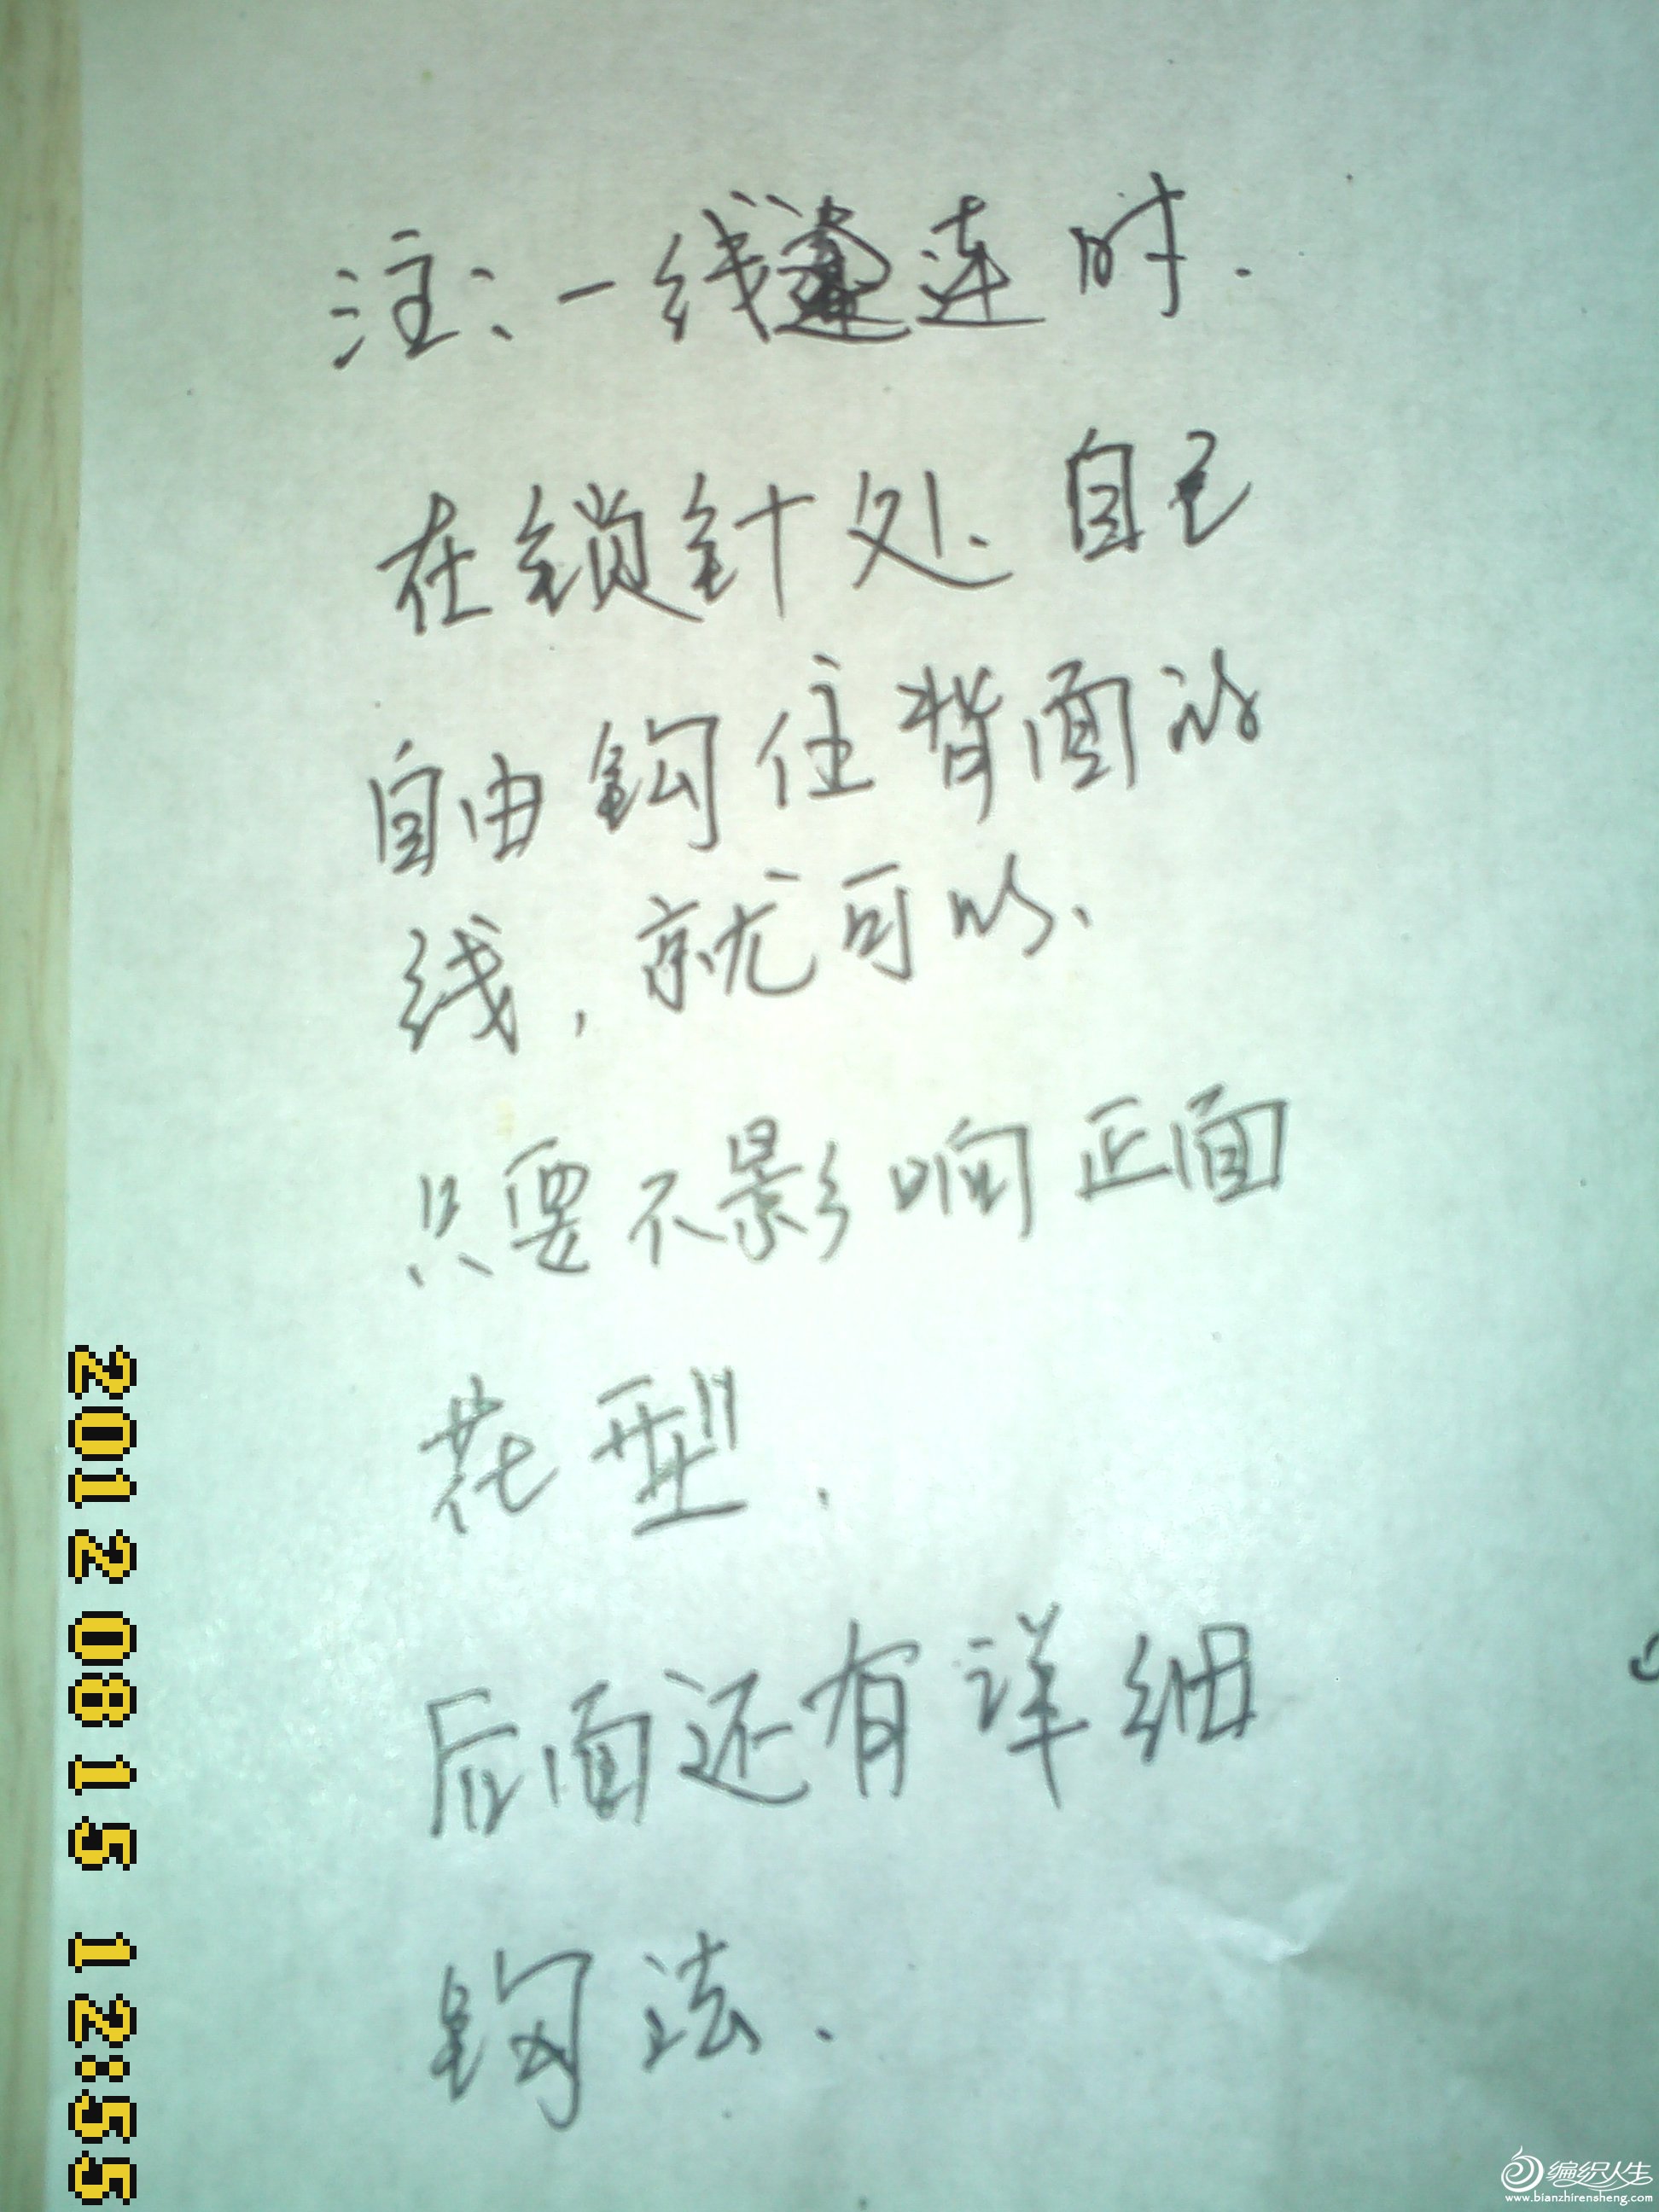 注、一线连时.
在锁针处、自己
自由钩住背面的
线,就可以、
只要不影响正面
花型.
后面还有详细
钩法.
2012 08 15 12:55
编织人生
www.bianzhirensheng.com